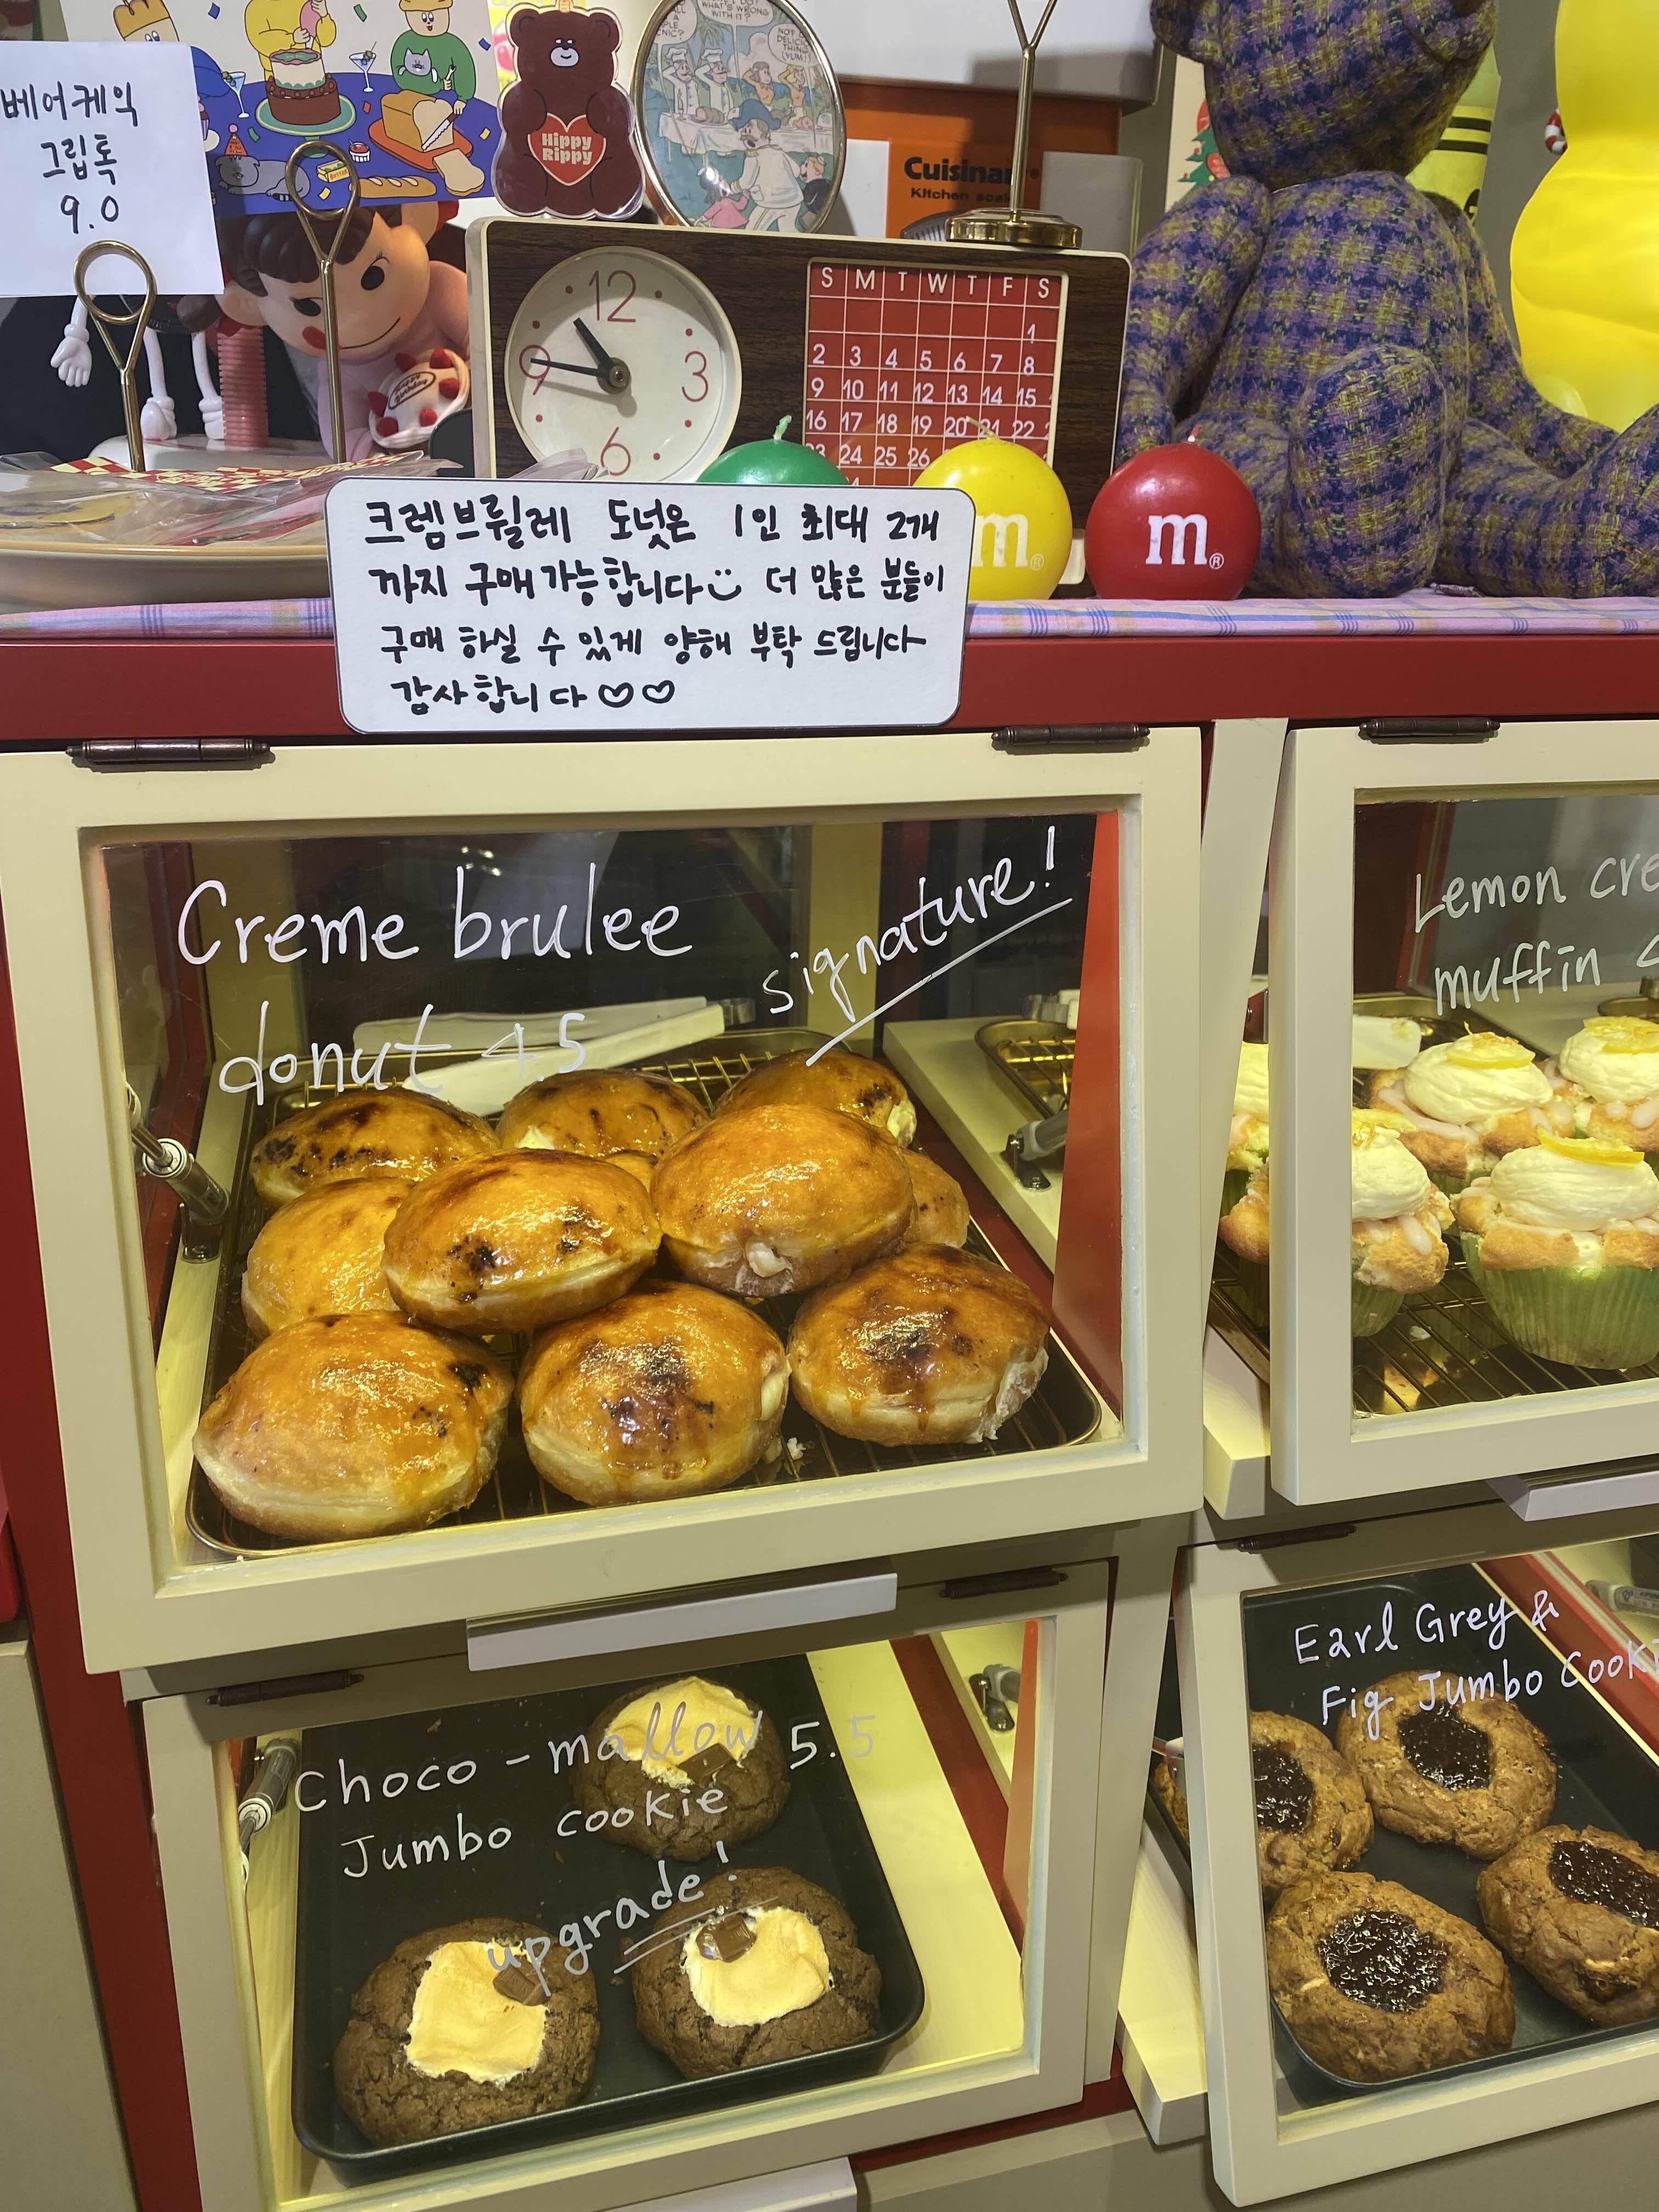 베어케익
그립톡
9.0
Hippy
Rippy
WHAT'S WRONG
WITH IT?
Kitchen
12
3
6
9
S M T W T F S
1
2 3 4 5 6 7 8
9 10 11 12 13 14 15
16 17 18 19 20 21 22
24 25 26
크렘브륄레 도넛은 1인 최대 2개
까지 구매가능합니다 더 많은 분들이
구매 하실 수 있게 양해 부탁 드립니다
감사합니다♡♡
m®
m®
Creme brulee
donut 4.5
signature!
Lemon
muffin
Choco-mallow 5.5
Jumbo cookie
upgrade!
Earl Grey &
Fig Jumbo